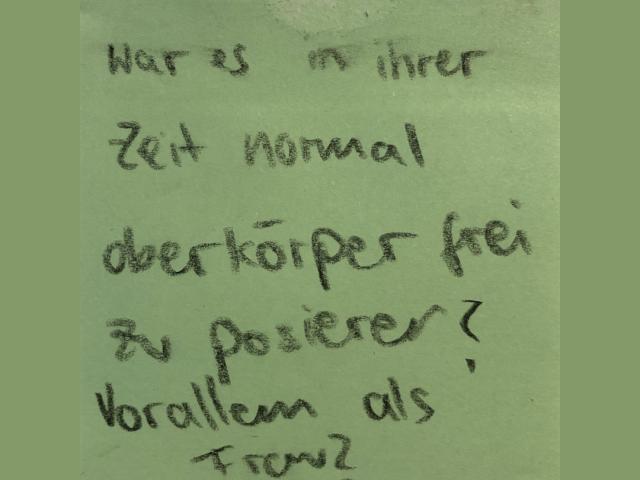 War es in ihrer
Zeit normal
oberkörper frei
zu posieren?
Vorallem als